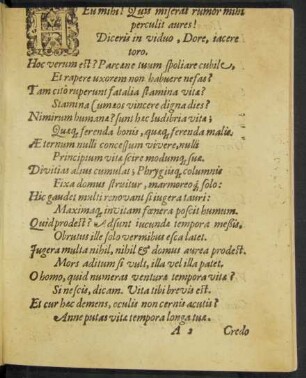 Eu mihi! Quis miseras rumor mihi
perculit aures!
Diceris in viduo, Dore, iacere
toro.
Hoc verum est? Parcæne tuum spoliare cubile,
Et rapere uxorem non habuere nefas?
Tam citò ruperunt fatalia stamina vitæ?
Stamina Cumæos vincere digna dies?
Nimirum humanæ sunt hæc ludibria vitæ;
Quæq; ferenda bonis, quæq; ferenda malis.
Æternum nulli concessum vivere, nulli
Principium vitæ scire modumq; suæ.
Divitias alius cumulat; Phrygiisq; columnis
Fixa domus struitur, marmoreoq; solo:
Hic gaudet multi renovari si iugera tauri:
Maximaq; invitam fœnera poscit humum.
Quid prodest? Adsunt iucundæ tempora messis,
Obrutus ille solo vermibus esca iacet.
Iugera multa nihil, nihil & domus aurea prodest.
Mors aditum si vult, illa vel illa patet.
O homo, quid numeras venturæ tempora vitæ?
Si nescis, dicam. Vita tibi brevis est.
Et cur hæc demens, oculis non cernis acutis?
Anne putas vitæ tempora longa tuæ.
A 2 Credo